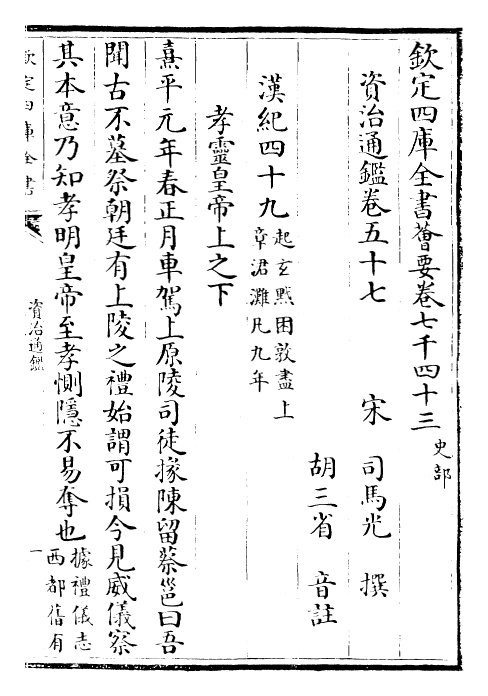 欽定四庫全書薈要卷七千四十三史部
資治通鑑卷五十七
宋司馬光撰
胡三省音註
漢紀四十九起玄黓困敦盡上
章涒灘凡九年
孝靈皇帝上之下
熹平元年春正月車駕上原陵司徒掾陳留蔡邕曰吾
聞古不墓祭朝廷有上陵之禮始謂可損今見威儀察
其本意乃知孝明皇帝至孝惻隱不易奪也據禮儀志
西都舊有
欽定四庫全書
資治通鑑
一